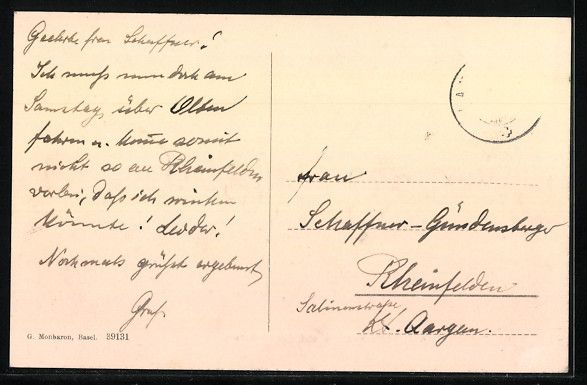 Geehrte Frau Schaffner!
Ich muss nun doch am
Samstag über Olten
fahren u. komme somit
nicht so an Rheinfelden
vorbei, dass ich winken
könnte! Leider!
Nochmals grüsst ergebenst
Graf.
Frau
Schaffner-Gündensberger
Rheinfelden
Salinenstrasse
Kt. Aargau.
G. Monbaron, Basel. 39131